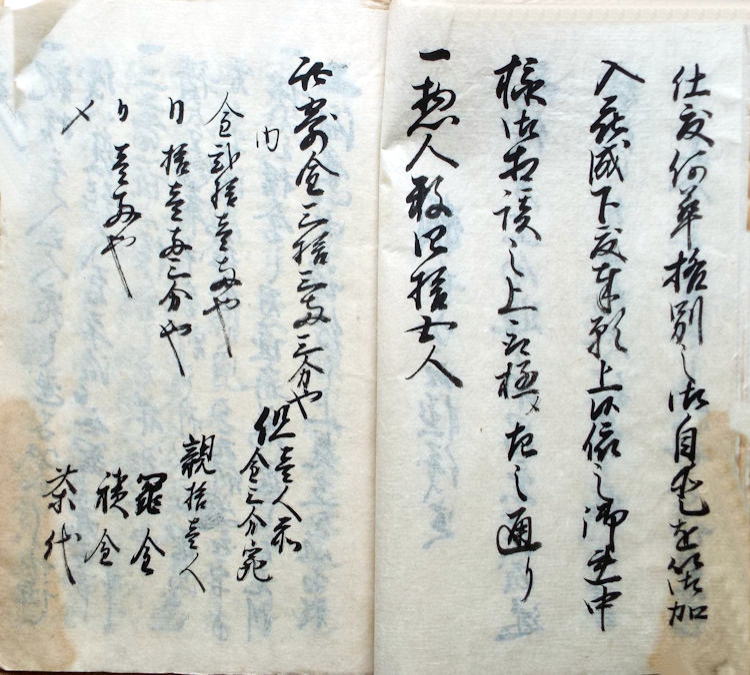 仕度何卒格別之御自愛を御加
入被成下度奉願上候依之御連中
様御相談之上取極〆左之通り
一惣人数四拾五人
此寄金三拾三両三分也
但壱人前
金三分宛
内
金弐拾壱両也
親拾壱人
鬮金
〃拾壱両三分也
積金
〃壱両也
茶代
〆